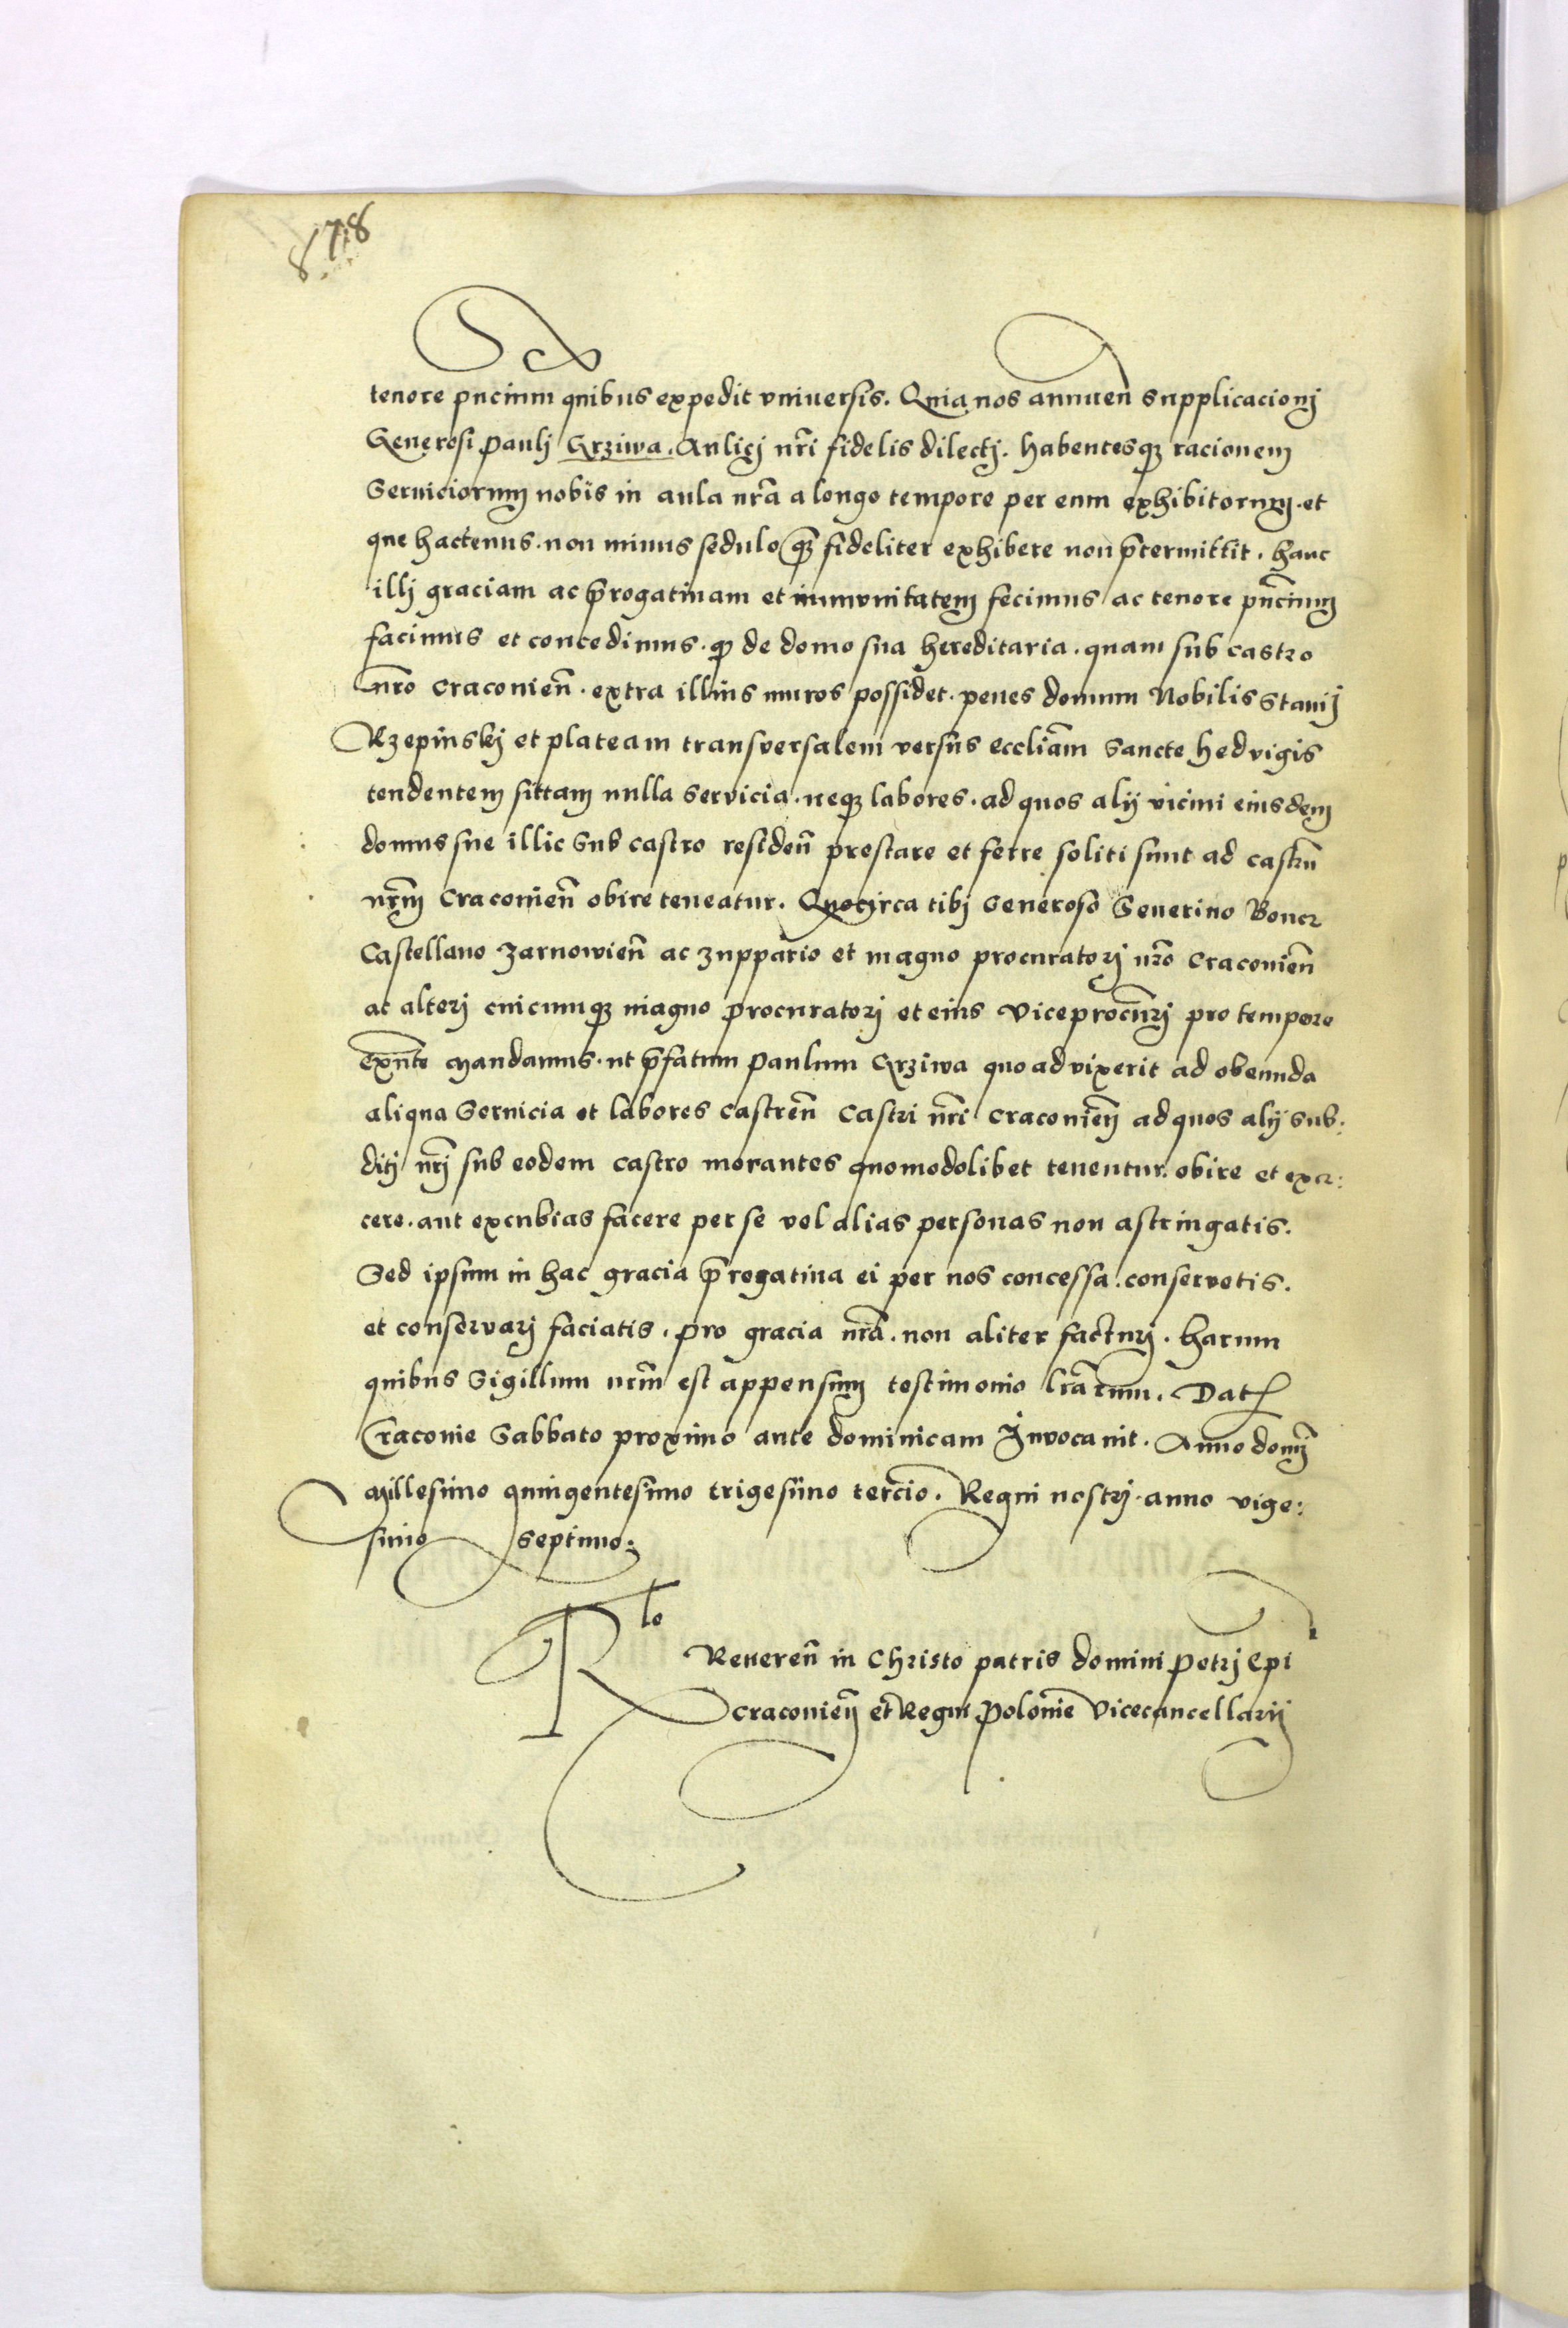 878
tenore pñcium quibus expedit vniuersis. Quia nos annuen̄ supplicacionj
Generosi Paulj Grziwa. Aulicj nr̃i fidelis dilectj. habentesq₃ racionem
Seruiciorum nobis in aula nr̃a a longo tempore per eum exhibitorum. et
que hactenus. non minus sedulo q̃₃ fideliter exhibere non p̃termittit. hanc
illj graciam ac p̃rogatiuam et immunitatem fecimus ac tenore pñcium
facimus et concedimus. q₃ de domo sua hereditaria. quam sub castro
nr̃o Craconien̄. extra illius muros possidet. penes domum Nobilis Stanij
Rzepinskj et plateam transuersalem versus eccliãm Sancte Hedvigis
tendentem sittam nulla Servicia. neq₃ labores. ad quos alij vicini eiusdem
domus sue illic Sub castro residen̄ prestare et ferre soliti sunt ad castrũ
nr̃m Craconien̄ obire teneatur. Quocirca tibj Generoso Seuerino Boner
Castellano Zarnowien̄ ac zuppario et magno procuratorj nr̃o Craconien̄
ac alterj cuicumq₃ magno procuratorj et eius viceprocũrj pro tempore
exñte Mandamus. ut p̃fatum Paulum Grziwa quo advixerit ad obeunda
aliqua Seruicia et labores castren̄ Castri nr̃i Craconien̄ ad quos alij sub:
ditj nr̃j sub eodem castro morantes quomodolibet tenentur. obire et exer:
cere. aut excubias facere per se vel alias personas non astringatis.
Sed ipsum in hac gracia p̃rogatiua ei per nos concessa. conservetis.
et conservarj faciatis. pro gracia nr̃a. non aliter facturj. harum
quibus Sigillum nr̃m est appensum testimonio lr̃arum. Dat
Craconie Sabbato proximo ante dominicam Invocauit. Anno domj̃
millesimo quingentesimo trigesimo tercio. Regni nostrj. anno vige:
simo septimo:
Rle
Reueren̄ in Christo patris domini Petrj Epi
Craconien̄ et Regni Polonie Vicecancellarij